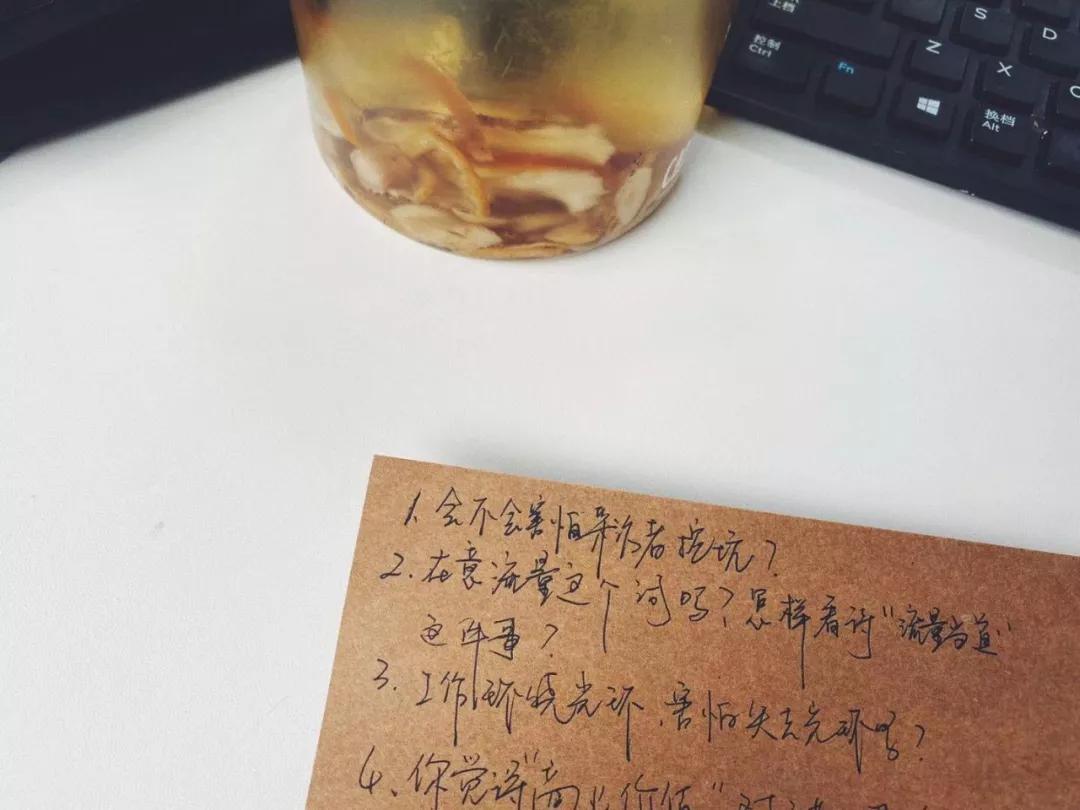 上档
控制
Ctrl
Fn
Z
X
S
D
换档
Alt
1、会不会害怕采访者挖坑？
2、在意流量这个词吗？怎样看待“流量当道”
这件事？
3、工作环绕光环、害怕失去光环吗？
4、你觉得“商业价值”